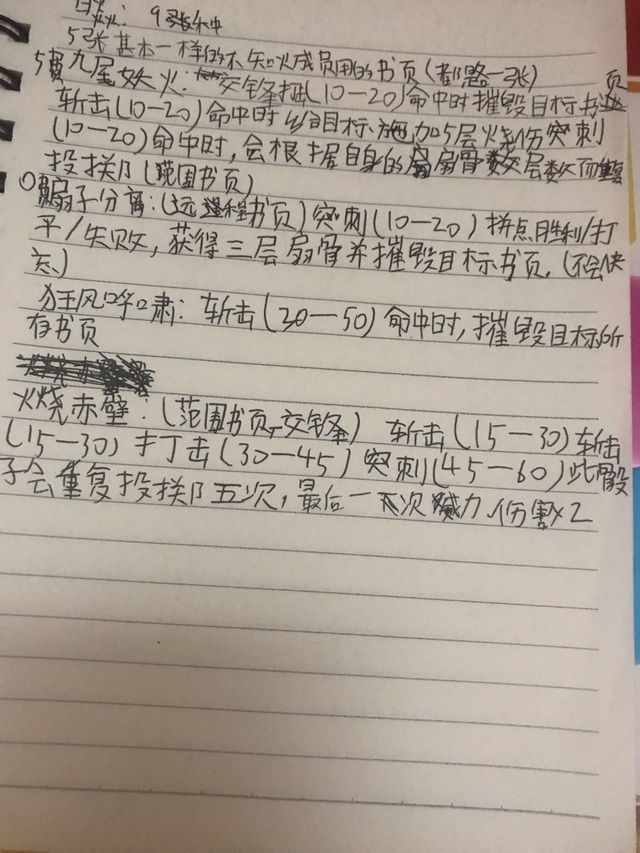 9张
5张基本一样的不知火成员用的书页(都略一张)
5费九尾妖火:交锋 (10-20)命中时摧毁目标书页
斩击(10-20)命中时给目标施加5层烧伤突刺
(10-20)命中时,会根据自身的扇骨层数而重复
投掷(范围书页)
0扇子分离:(远程书页)突刺(10-20)拼点胜利/打
平/失败,获得三层扇骨并摧毁目标书页。(不会失
去)
狂风呼啸:斩击(30-50)命中时,摧毁目标所
有书页
火烧赤壁:(范围书页-交锋) 斩击(15-30)斩击
(15-30)打击(30-45)突刺(45-60)此骰
子会重复投掷五次,最后一次威力,伤害x2